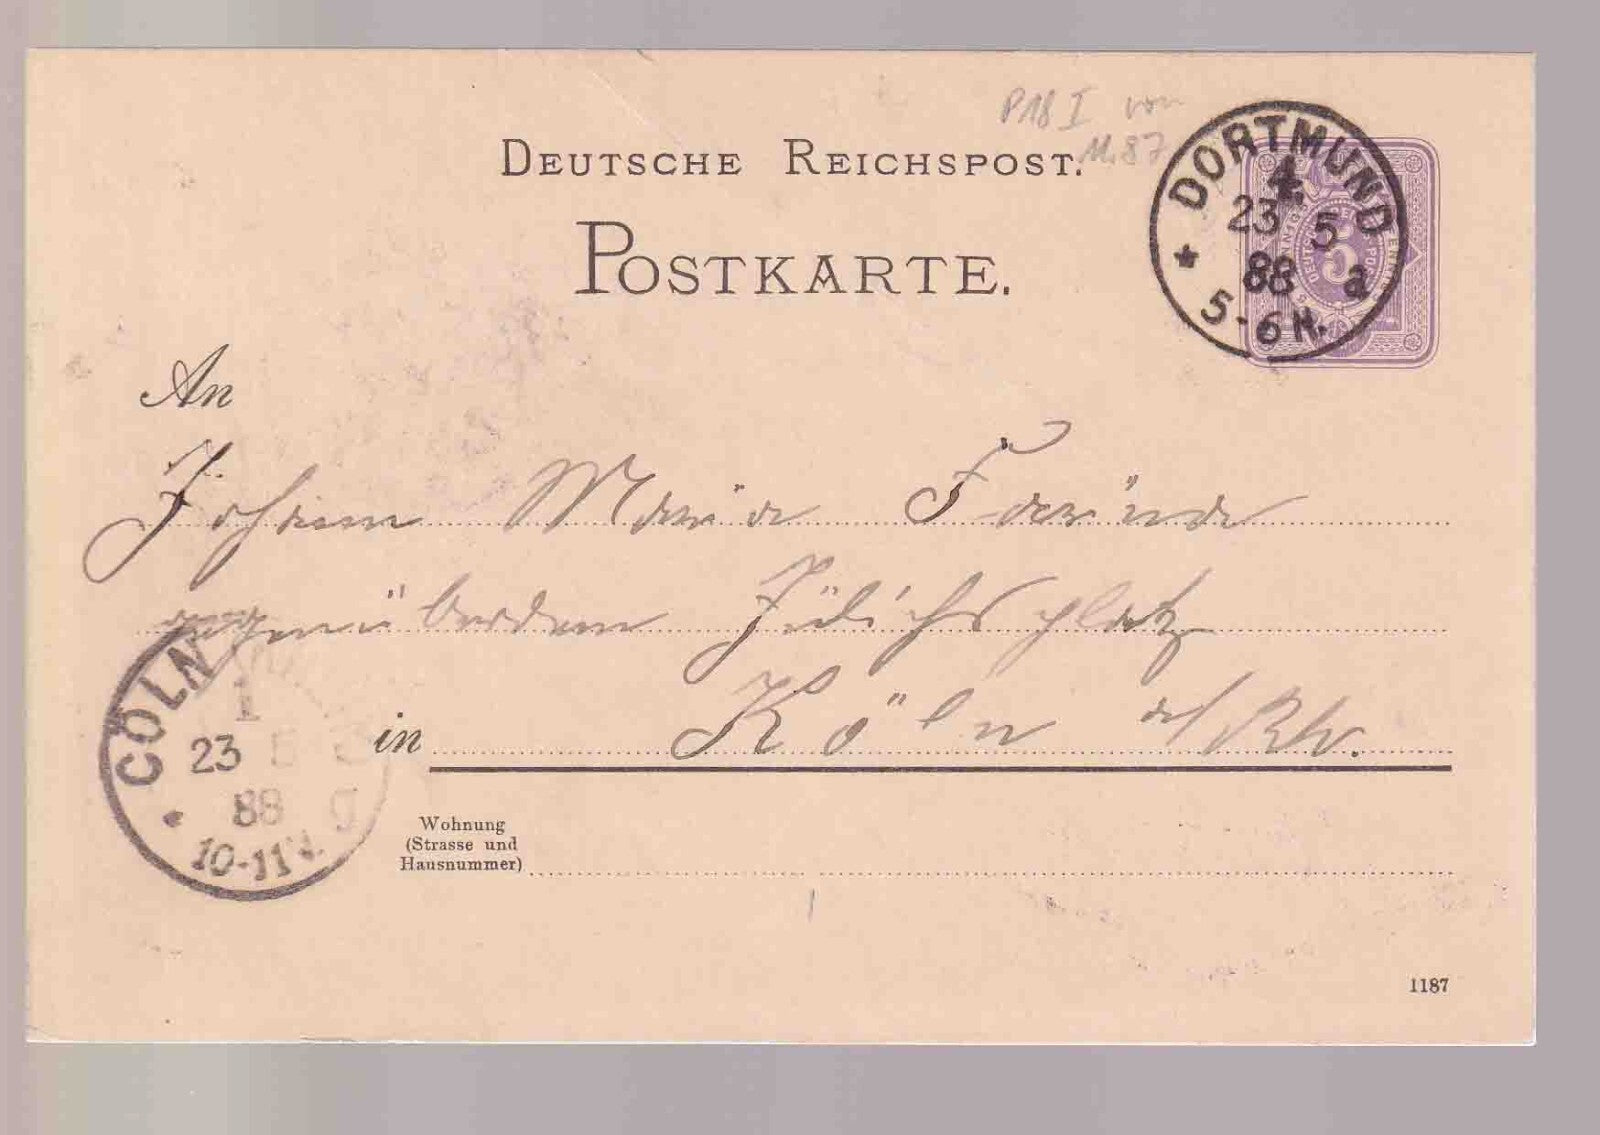 P18 I von
11.87
DEUTSCHE REICHSPOST.
POSTKARTE.
DORTMUND
4.
23 5
88 a
* 5-6 N.
5
An
Johann Maria Farina
gegenüber dem Jülichsplatz
in Köln a/Rh.
CÖLN
1
23 5
88
* 10-11 N.
Wohnung
(Strasse und
Hausnummer)
1187